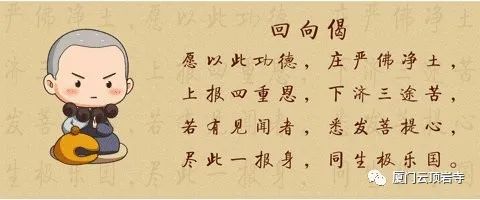 回向偈
愿以此功德，庄严佛净土，
上报四重恩，下济三途苦，
若有见闻者，悉发菩提心，
尽此一报身，同生极乐国。
厦门云顶岩寺